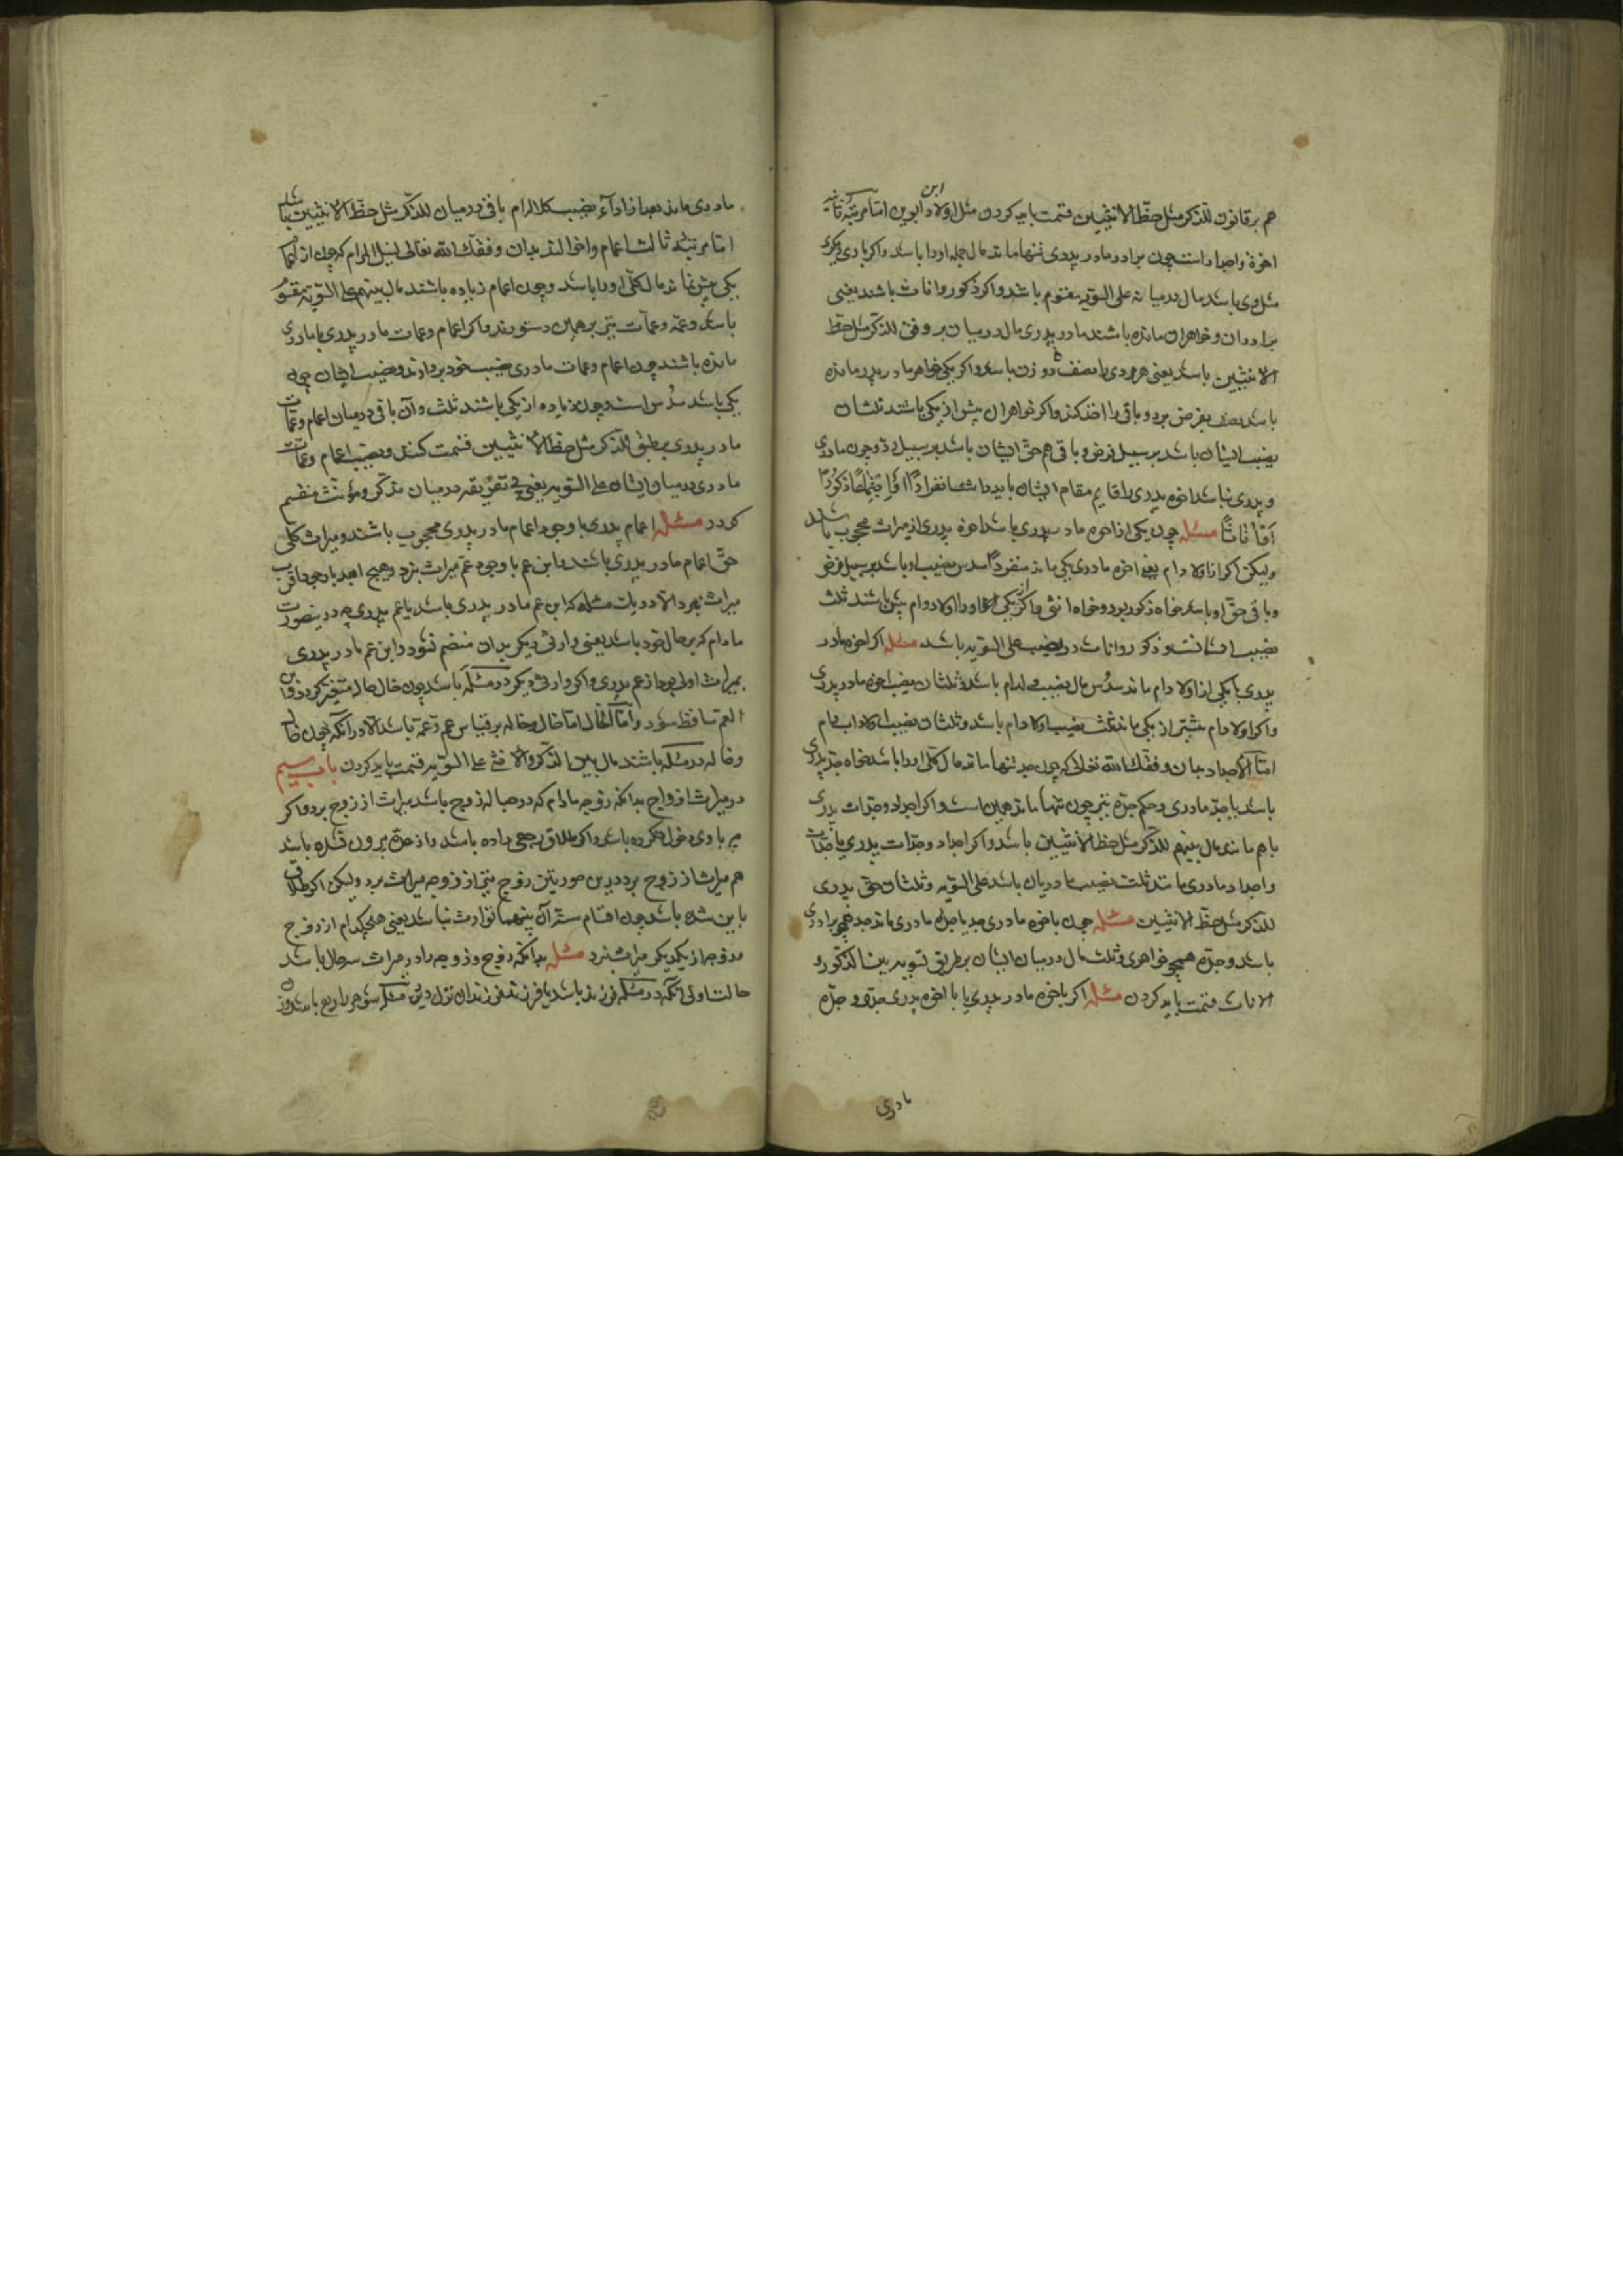 هم بر قانون للذکر مثل حظ الانثیین قسمت باید کردن مثل اولاد ابن ابوین اما مرتبه ثانیه
اخوة و اجداد است چون برادر مادر پدری تنها ماند مال جمله او را باشد و اکر با وی دیکری
مثل وی باشد مال در میانه علی السویه مقسوم باشد و اکر ذکور و اناث باشند یعنی
برادران و خواهران مانده باشند مادر پدری مال در میان بر وفق للذکر مثل حظ
الانثیین باشد یعنی هر مردی را نصف دو زن باشد و اکر یکی خواهر مادر پدر مانده
باشد نصف بفرض برد و باقی را اخذ کند و اکر خواهران بیش از یکی باشند ثلثان
نصیب ایشان باشد بر سبیل فرض و باقی هم حق ایشان باشد بر سبیل رد و چون مادری
و پدری نباشد اخوه پدری را قایم مقام ایشان باید داشت انفرادا او اجتماعا ذکورا
او اناثا مسئله چون یکی از اخوه مادر پدری باشد اخوه پدری از میراث محجوب باشد
ولیکن اکر از اولاد ام یعنی اخوه مادری یکی ماند منفردا سدس نصیب او باشد بر سبیل فرض
و باقی حق او باشد خواه ذکور بود و خواه انثی و اکر از یکی اولاد ام بیش باشند ثلث
نصیب ایشانست و ذکور و اناث در نصیب علی السویه باشد مسئله اکر اخوه مادر
پدری با یکی از اولاد ام ماند سدس مال نصیب ولد ام باشد و ثلثان نصیب اخوه مادر پدری
و اکر اولاد ام بیشتر از یکی ماند ثلث نصیب اولاد ام باشد و ثلثان نصیب اولاد اب و ام
اما الاجداد بدان وفقک الله تعالی که چون جد تنها ماند مال کلی او را باشد خواه جد پدری
باشد یا جد مادری و حکم جده نیز چون تنها ماند همین است و اکر اجداد و جدات پدری
با هم مانند مال بینهم للذکر مثل حظ الانثیین باشد و اکر اجداد و جدات پدری با جدات
و اجداد مادری مانند ثلث نصیب مادریان باشد علی السویه و ثلثان حق پدری
للذکر مثل حظ الانثیین مسئله چون با اخوه مادری جد یا جده مادری ماند جد همچو برادری
باشد و جده همچو خواهری و ثلث مال در میان ایشان بطریق تسویه بین الذکور و
الاناث قسمت باید کردن مسئله اکر با اخوه مادر پدری یا با اخوه پدری جد و جده
مادری
مادری ماند بعد از اداء نصیب کلاله الام باقی در میان للذکر مثل حظ الانثیین باشد
اما مرتبه ثالث اعمام و اخوالند بدان وفقک الله تعالی لنیل المرام که چون از اعمام
یکی بیش نماند مال کلی او را باشد و چون اعمام زیاده باشند مال بینهم علی السویه مقسوم
باشد و عمه و عمات نیز بر همین دستورند و اکر اعمام و عمات مادر پدری با مادری
مانده باشند چون اعمام و عمات مادری نصیب خود بردارند و نصیب ایشان چون
یکی باشد سدس است و چون زیاده از یکی باشند ثلث و آن باقی در میان اعمام و عمات
مادر پدری بر طبق للذکر مثل حظ الانثیین قسمت کنند و نصیب اعمام و عمات
مادری در میان ایشان علی السویه یعنی بی تفریقه در میان مذکر و مؤنث منقسم
کردد مسئله اعمام پدری با وجود اعمام مادر پدری محجوب باشند و میراث کلی
حق اعمام مادر پدری باشند و ابن عم با وجود عم میراث نبرد و هیچ ابعد با وجود اقرب
میراث نبرد الا در یک مسئله که ابن عم مادر پدری باشد با عم پدری چه در ینصورت
مادام که بر حال خود باشد یعنی وارثی دیکر بدان منضم نشود و ابن عم مادر پدری
بمیراث اولی بود از عم پدری و اکر وارثی دیکر در مسئله باشد چون خال حال متغیر کردد و ابن
العم ساقط شود و اما الخال اما خال و خاله بر قیاس عم و عمه باشد الا در آنکه چون خال
و خاله در مسئله باشند مال بین الذکر و الانثی علی السویه قسمت باید کردن باب سیم
در میراث ازواج بدانکه زوجه مادام که در حباله زوج باشد میراث از زوج برد و اکر
چه با وی دخول نکرده باشد و اکر طلاق رجعی داده باشد و از عده بیرون نشده باشد
هم میراث از زوج برد درین صورتین زوج نیز از زوجه میراث برد ولیکن اکر طلاق
باین شده باشد چون اقسام ستر آن بینهما توارث نباشد یعنی هیچکدام از زوج
و زوجه از یکدیکر میراث نبرد مسئله بدانکه زوج و زوجه را در میراث سه حال باشد
حالت اولی آنکه در مسئله فرزند باشد یا فرزند فرزندان نزل درین مسئله شوهر را ربع باشد و زن